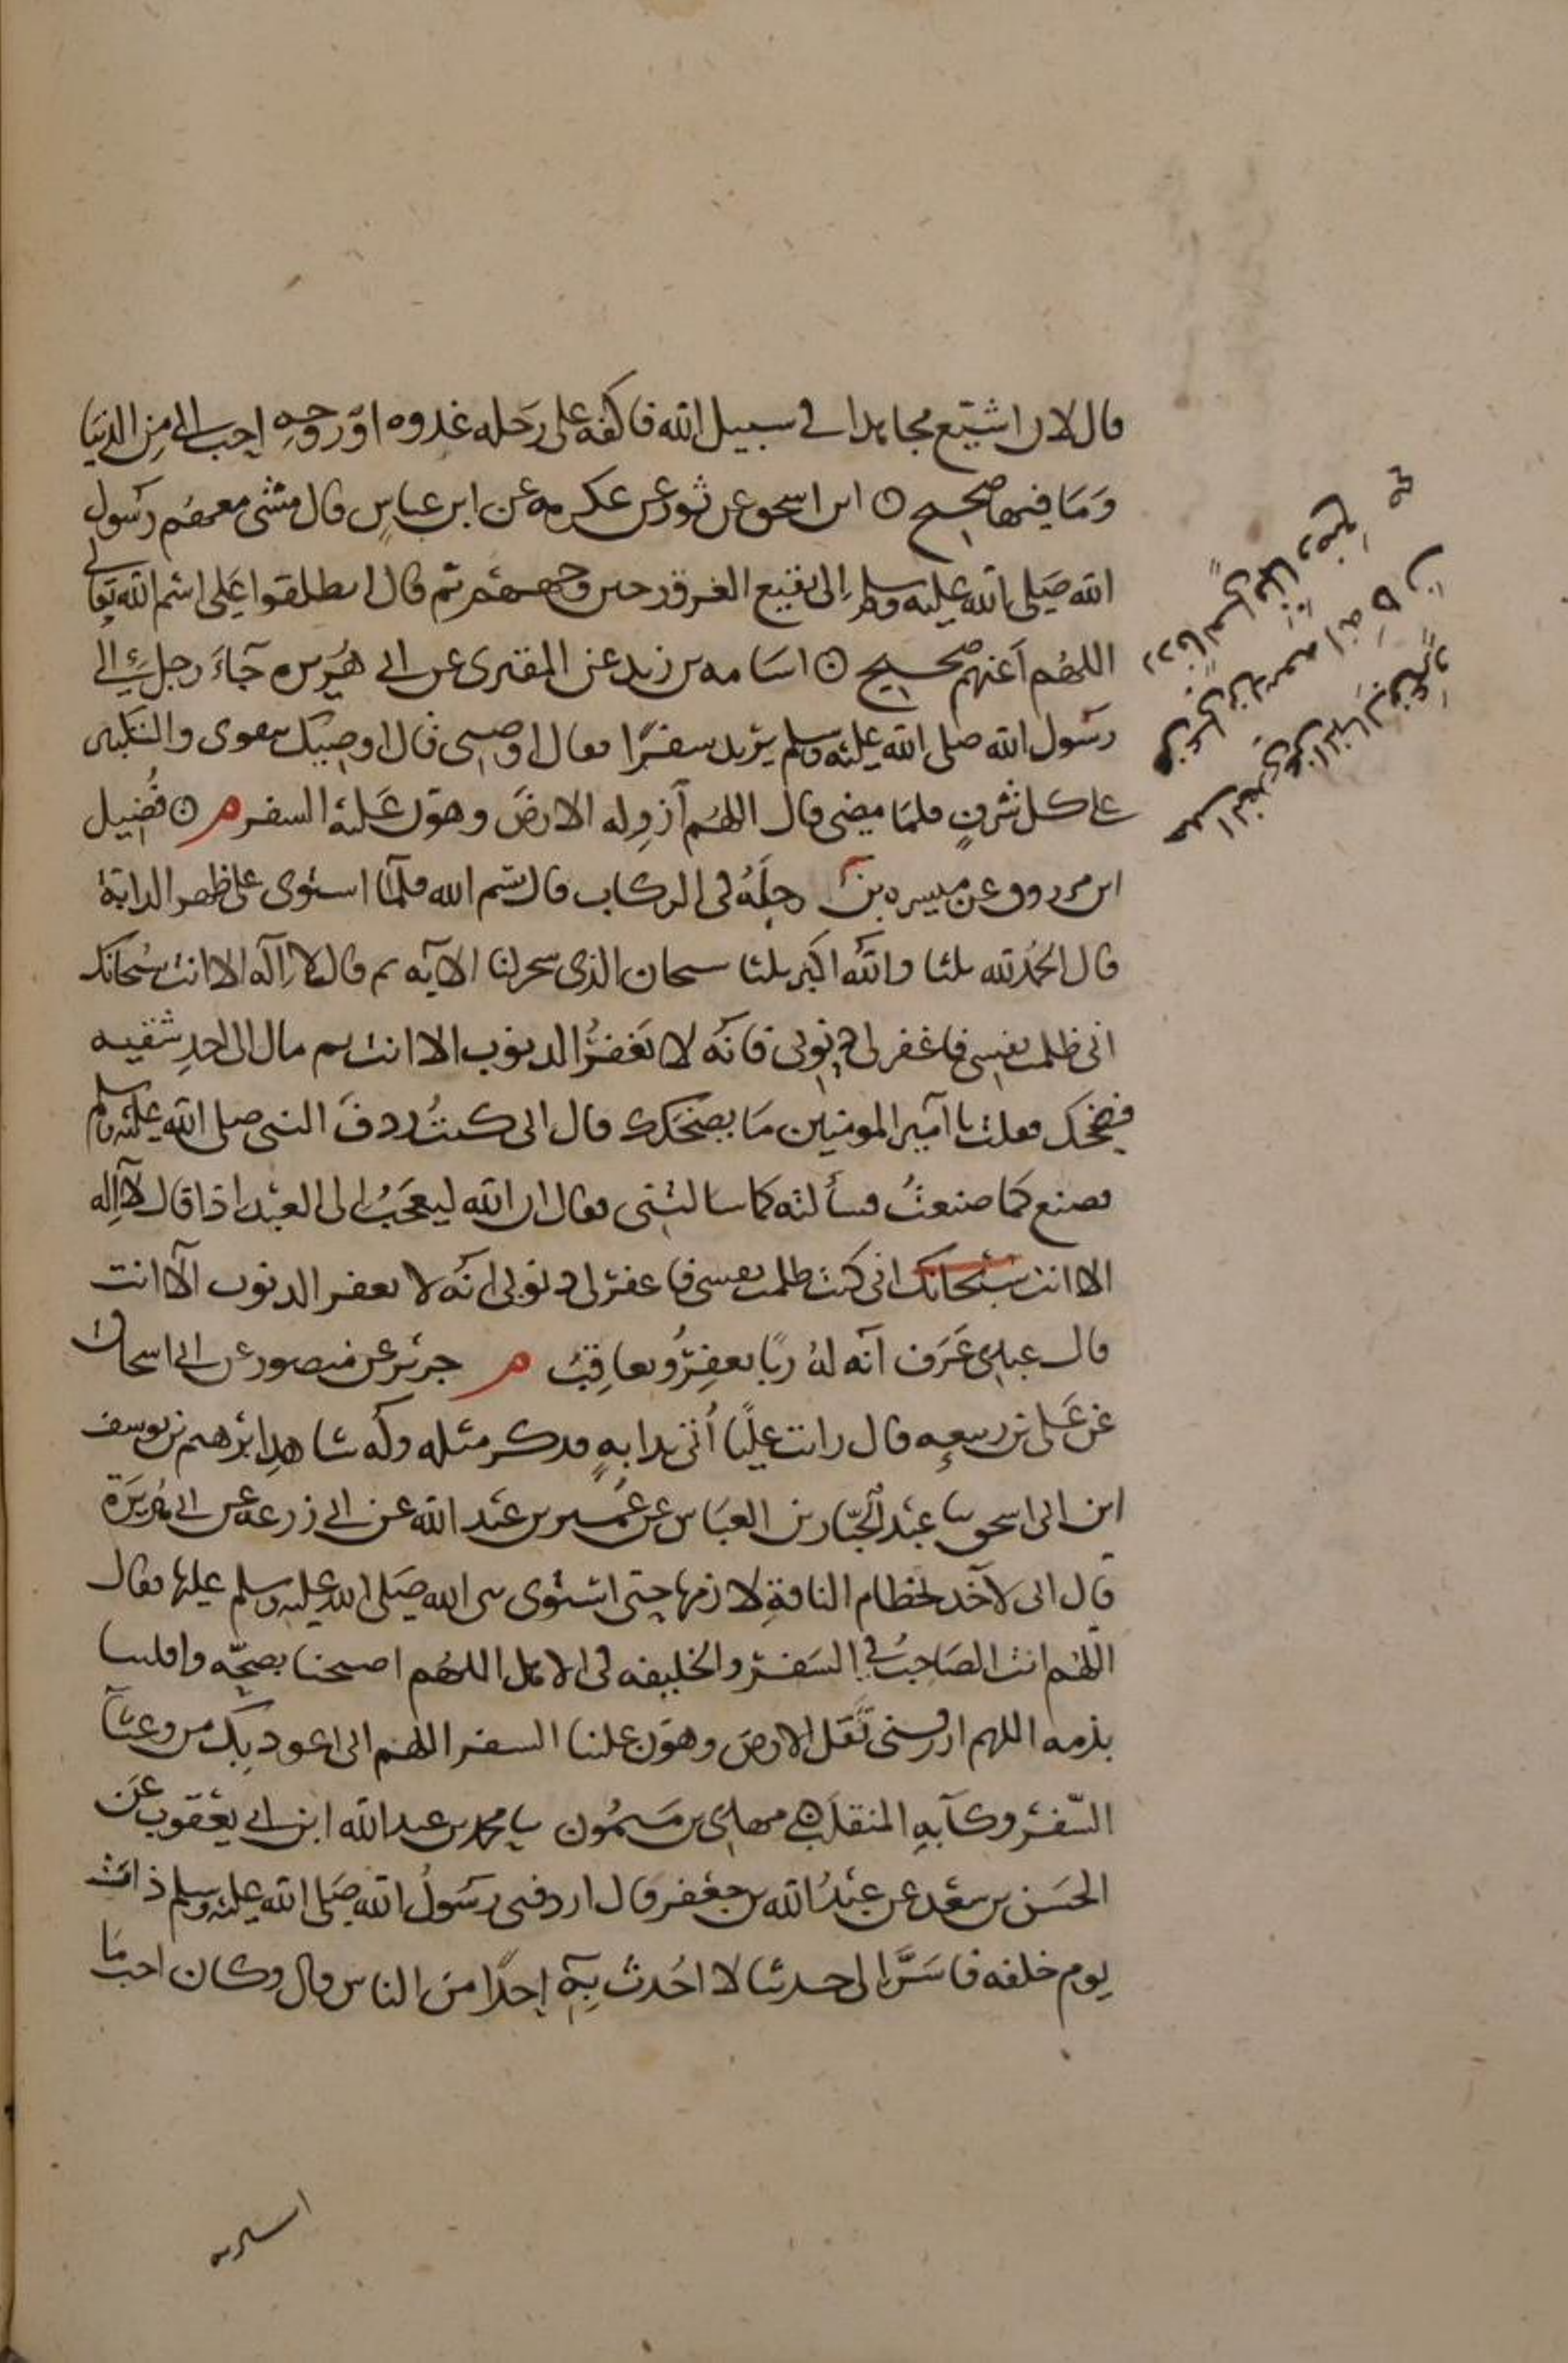 قال لان اشيع مجاهدا في سبيل الله فاكفه على رحله غدوه او روحه احب الي من الدنيا
وما فيها صحيح ⊙ ابن اسحق عن ثور عن عكرمه عن ابن عباس قال مشى معهم رسول
الله صلى الله عليه وسلم الى بقيع الغرقد حين وجههم ثم قال انطلقوا على اسم الله تعالى
اللهم اعنهم صحيح ⊙ اسامه بن زيد عن المقبرى عن ابي هريره جاء رجل الي
رسول الله صلى الله عليه وسلم يريد سفرا فقال اوصني قال اوصيك بتقوى والتكبير
على كل شرف فلما مضى قال اللهم ازو له الارض وهون عليه السفر م ⊙ فضيل
ابن مرزوق عن ميسره بن رجله في الركاب قال بسم الله فلما استوى على ظهر الدابة
قال الحمد لله ثلثا والله اكبر ثلثا سبحان الذي سخر لنا الآيه ثم قال لا اله الا انت سبحانك
اني ظلمت نفسي فاغفر لي ذنوبي فانه لا يغفر الذنوب الا انت ثم مال الى احد شقيه
فضحك فقلت يا امير المومنين ما يضحكك قال اني كنت ردف النبي صلى الله عليه وسلم
فصنع كما صنعت فسألته كما سالتني فقال ان الله ليعجب الى العبد اذا قال لا اله
الا انت سبحانك اني كنت ظلمت نفسي فاغفر لي ذنوبي انه لا يغفر الذنوب الا انت
قال عبدي عرف انه له ربا يغفر ويعاقب م جرير عن منصور عن ابي اسحاق
عن علي بن ربيعه قال رايت عليا أتى بدابه فذكر مثله وله شاهد ابرهيم بن يوسف
ابن ابي اسحق ثنا عبد الجبار بن العباس عن عمير بن عبد الله عن ابي زرعه عن ابي هريرة
قال اني لآخذ بخطام الناقة لازمها حتى استوى نبي الله صلى الله عليه وسلم عليها فقال
اللهم انت الصاحب في السفر والخليفه في الاهل اللهم اصحبنا بصحة واقلبنا
بذمه اللهم ارزقني ثقل الارض وهون علينا السفر اللهم اني اعوذ بك من وعثآ
السفر وكآبه المنقلب ⊙ مهدي بن ميمون ثنا محمد بن عبد الله ابن ابي يعقوب عن
الحسن بن سعد عن عبد الله بن جعفر قال اردفني رسول الله صلى الله عليه وسلم ذات
يوم خلفه فاسر الي حديثا لا احدث به احدا من الناس قال وكان احب ما